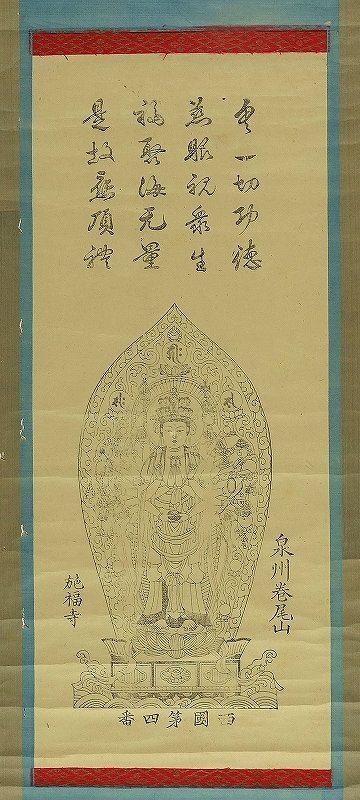 具一切功德
慈眼視衆生
福聚海无量
是故應頂禮
泉州卷尾山
施福寺
西國第四番